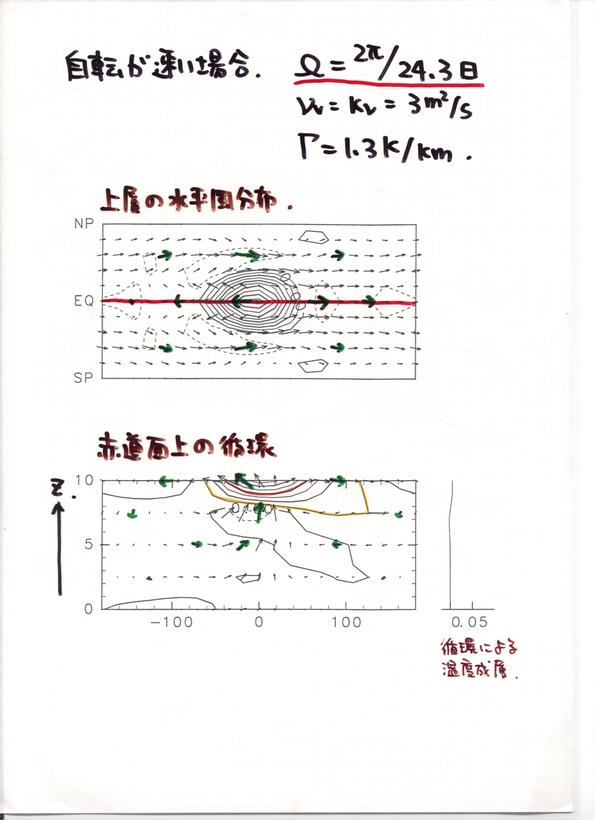 自転が速い場合. Ω = 2π/24.3日
νv = kv = 3m²/s
Γ = 1.3K/km.
上層の水平面分布.
NP
EQ
SP
赤道面上の循環
Z.
10
5
0
-100 0 100
0.05
循環による
温度成層.